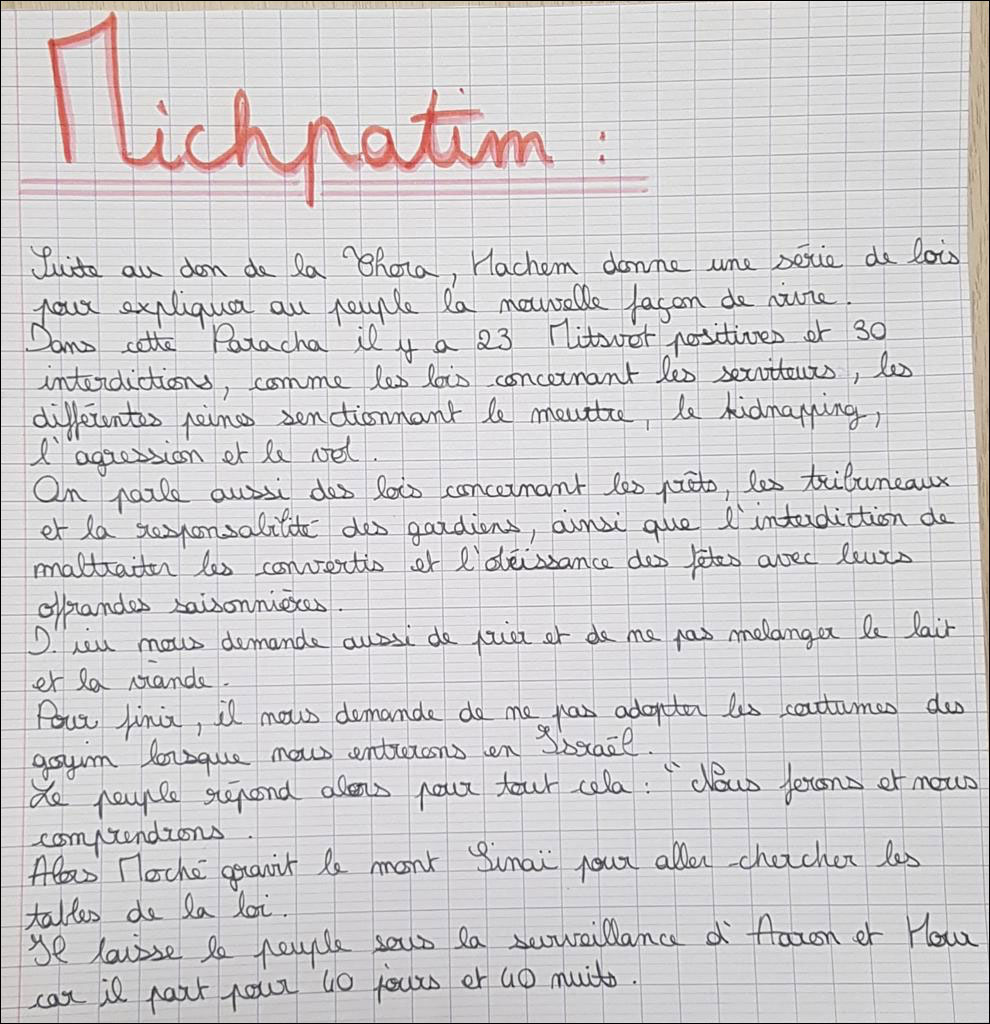 Michpatim :
Suite au don de la Thora, Hachem donne une série de lois
pour expliquer au peuple la nouvelle façon de vivre.
Dans cette Paracha il y a 23 Mitsvot positives et 30
interdictions, comme les lois concernant les serviteurs, les
différentes peines senctionnant le meurtre, le kidnapping,
l'agression et le vol.
On parle aussi des lois concernant les prêts, les tribuneaux
et la responsabilité des gardiens, ainsi que l'interdiction de
maltraiter les convertis et l'obéissance des fêtes avec leurs
offrandes saisonnières.
D.ieu nous demande aussi de prier et de ne pas melanger le lait
et la viande.
Pour finir, il nous demande de ne pas adopter les coutumes des
goyim lorsque nous entrerons en Israël.
Le peuple répond alors pour tout cela : "Nous ferons et nous
comprendrons.
Alors Moché gravit le mont Sinaï pour aller chercher les
tables de la loi.
Il laisse le peuple sous la surveillance d'Aaron et Hour
car il part pour 40 jours et 40 nuits.